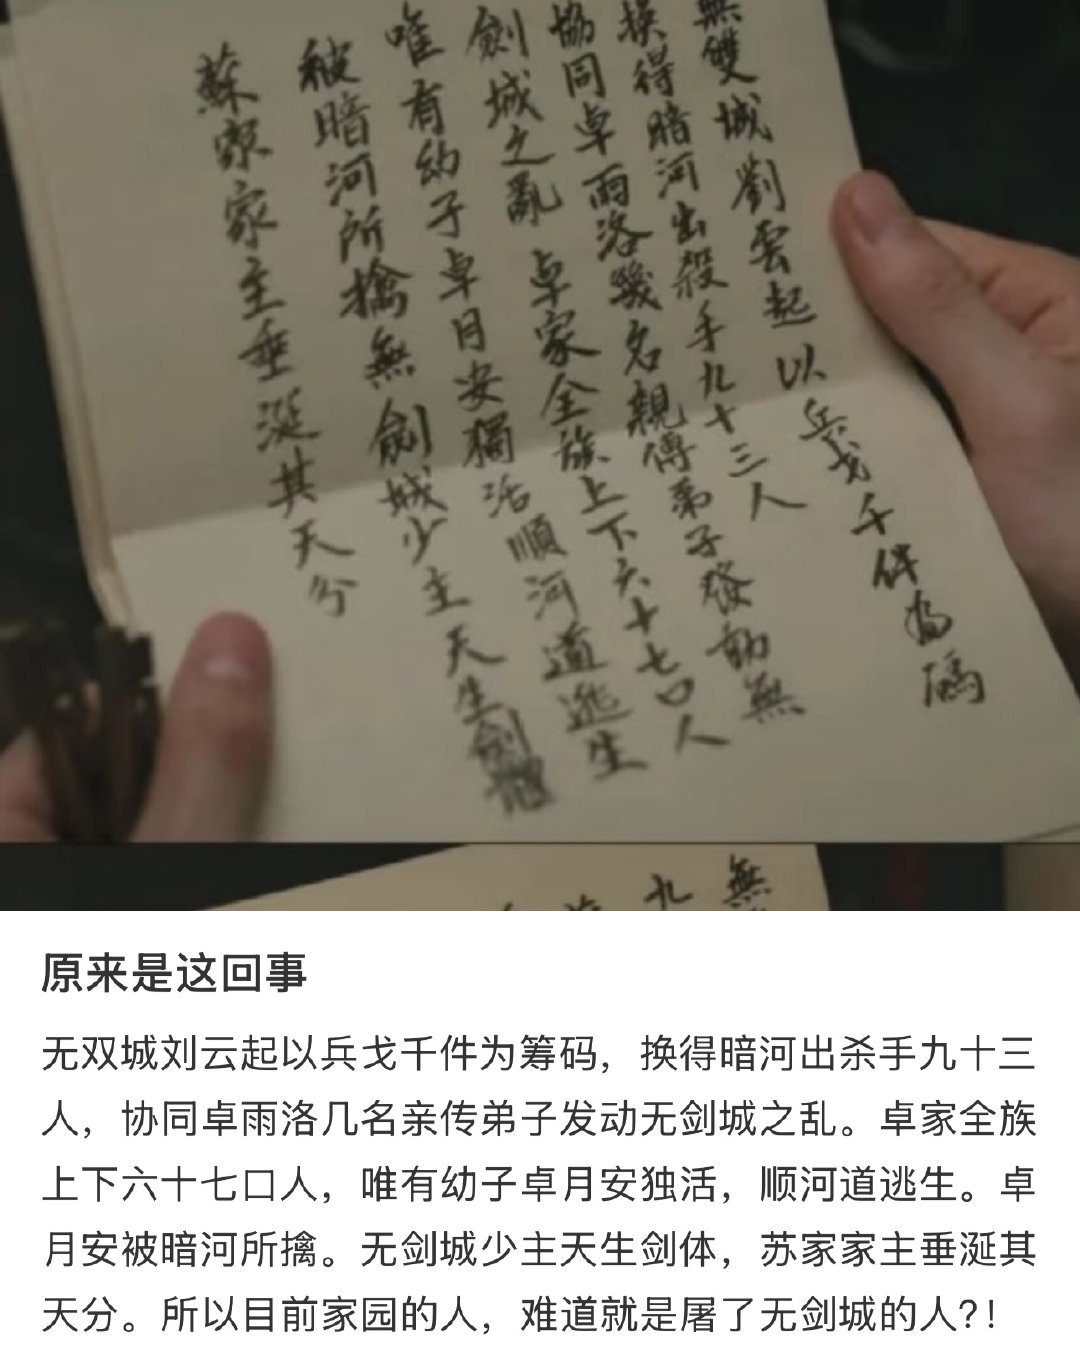 無雙城劉雲起以兵戈千件為碼
換得暗河出殺手九十三人
協同卓雨洛幾名親傳弟子發動無
劍城之亂 卓家全族上下六十七口人
唯有幼子卓月安獨活順河道逃生
被暗河所擒無劍城少主天生劍體
蘇家家主垂涎其天分
無
九
原来是这回事
无双城刘云起以兵戈千件为筹码，换得暗河出杀手九十三
人，协同卓雨洛几名亲传弟子发动无剑城之乱。卓家全族
上下六十七口人，唯有幼子卓月安独活，顺河道逃生。卓
月安被暗河所擒。无剑城少主天生剑体，苏家家主垂涎其
天分。所以目前家园的人，难道就是屠了无剑城的人?！